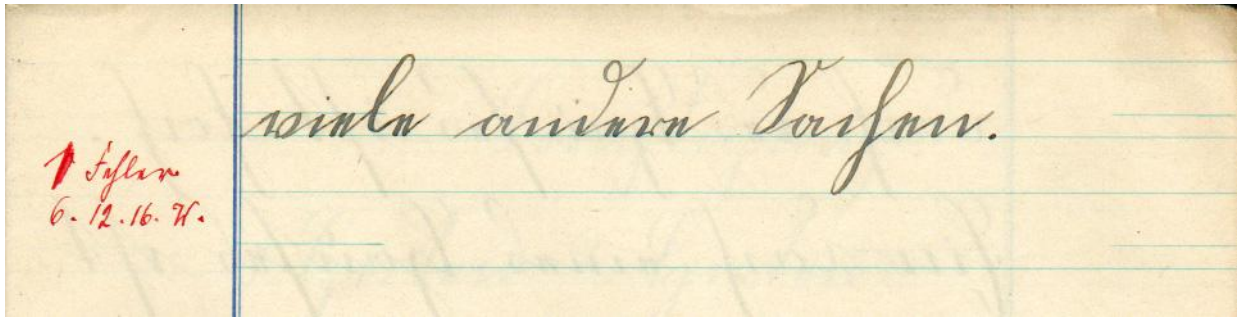 viele andere Sachen.
1 Fehler
6. 12. 16. W.